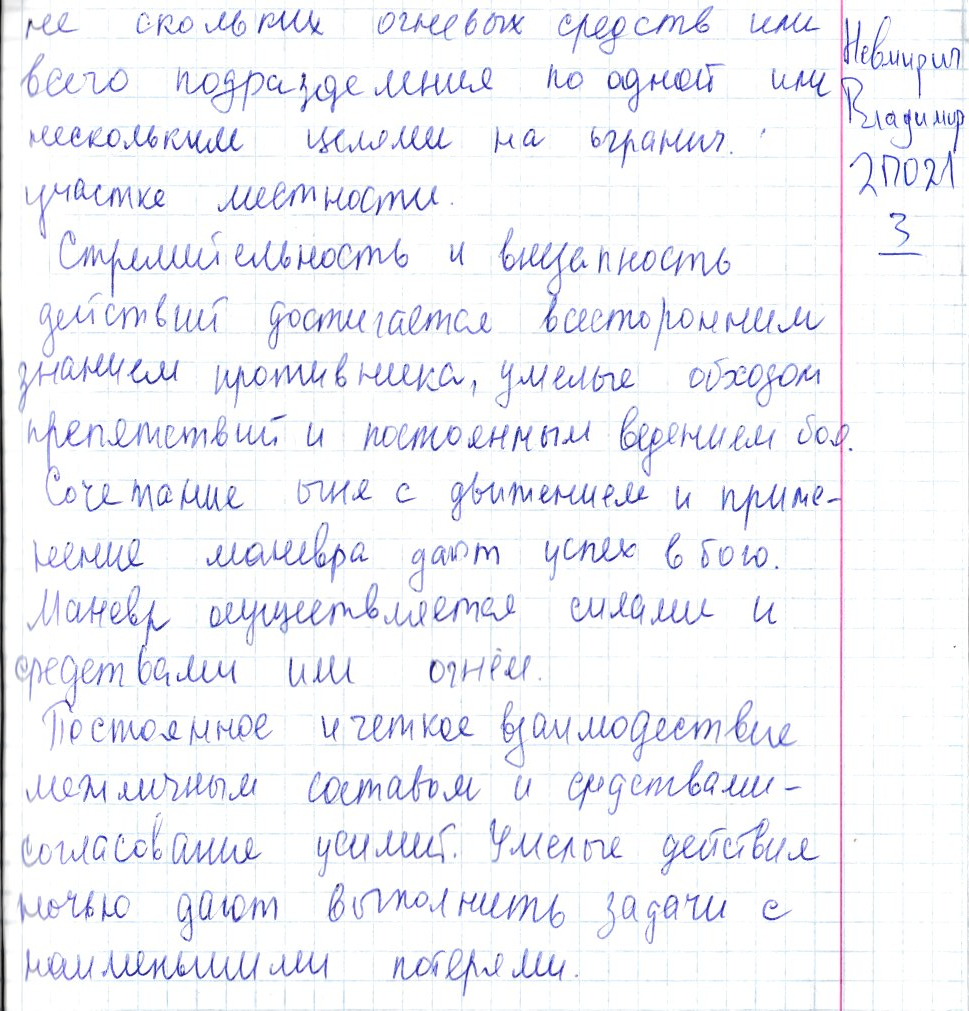 не скольких огневых средств или
всего подразделения по одной или
нескольким целями на огранич.
участке местности.
Стремительность и внезапность
действий достигается всесторонним
знанием противника, умелые обходом
препятствий и постоянным ведением боя.
Сочетание огня с движением и приме-
нение маневра дают успех в бою.
Маневр осуществляется силами и
средствами или огнём.
Постоянное и четкое взаимодествие
меж личным составом и средствами-
согласование усилий. Умелые действия
ночью дают выполнить задачи с
наименьшими потерями.
Невмирич
Владимир
2П021
3